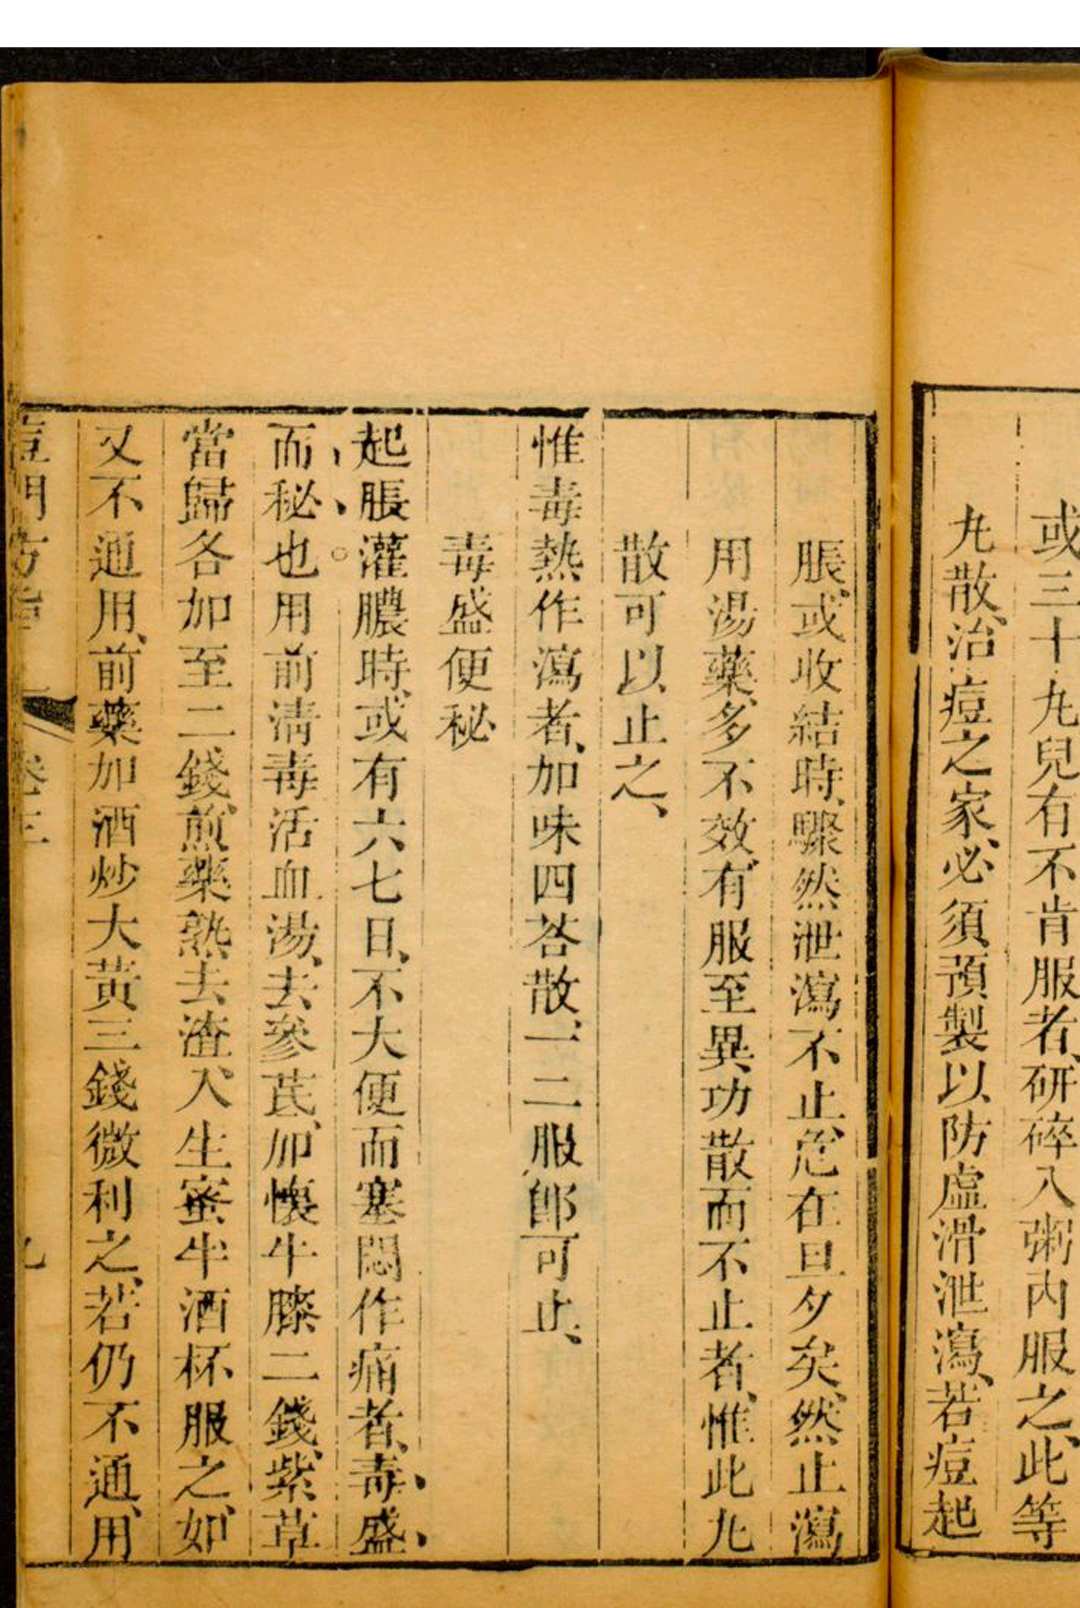 或三十九兒有不肯服者、研碎入粥內服之、此等
九散、治痘之家、必須預製以防虛滑泄瀉、若痘起
脹、或收結時、驟然泄瀉不止、危在旦夕矣、然止瀉
用湯藥、多不效、有服至異功散而不止者、惟此九
散可以止之、
惟毒熱作瀉者、加味四苓散、一二服、郎可止、
毒盛便秘
起脹灌膿時、或有六七日、不大便而塞悶作痛者、毒盛、
而秘也用前清毒活血湯、去參芪、加懷牛膝二錢、紫草
當歸各加至二錢、煎藥熟去渣、入生蜜半酒杯服之、如
又不通用、前藥加酒炒大黃三錢微利之、若仍不通、用
卷三
九